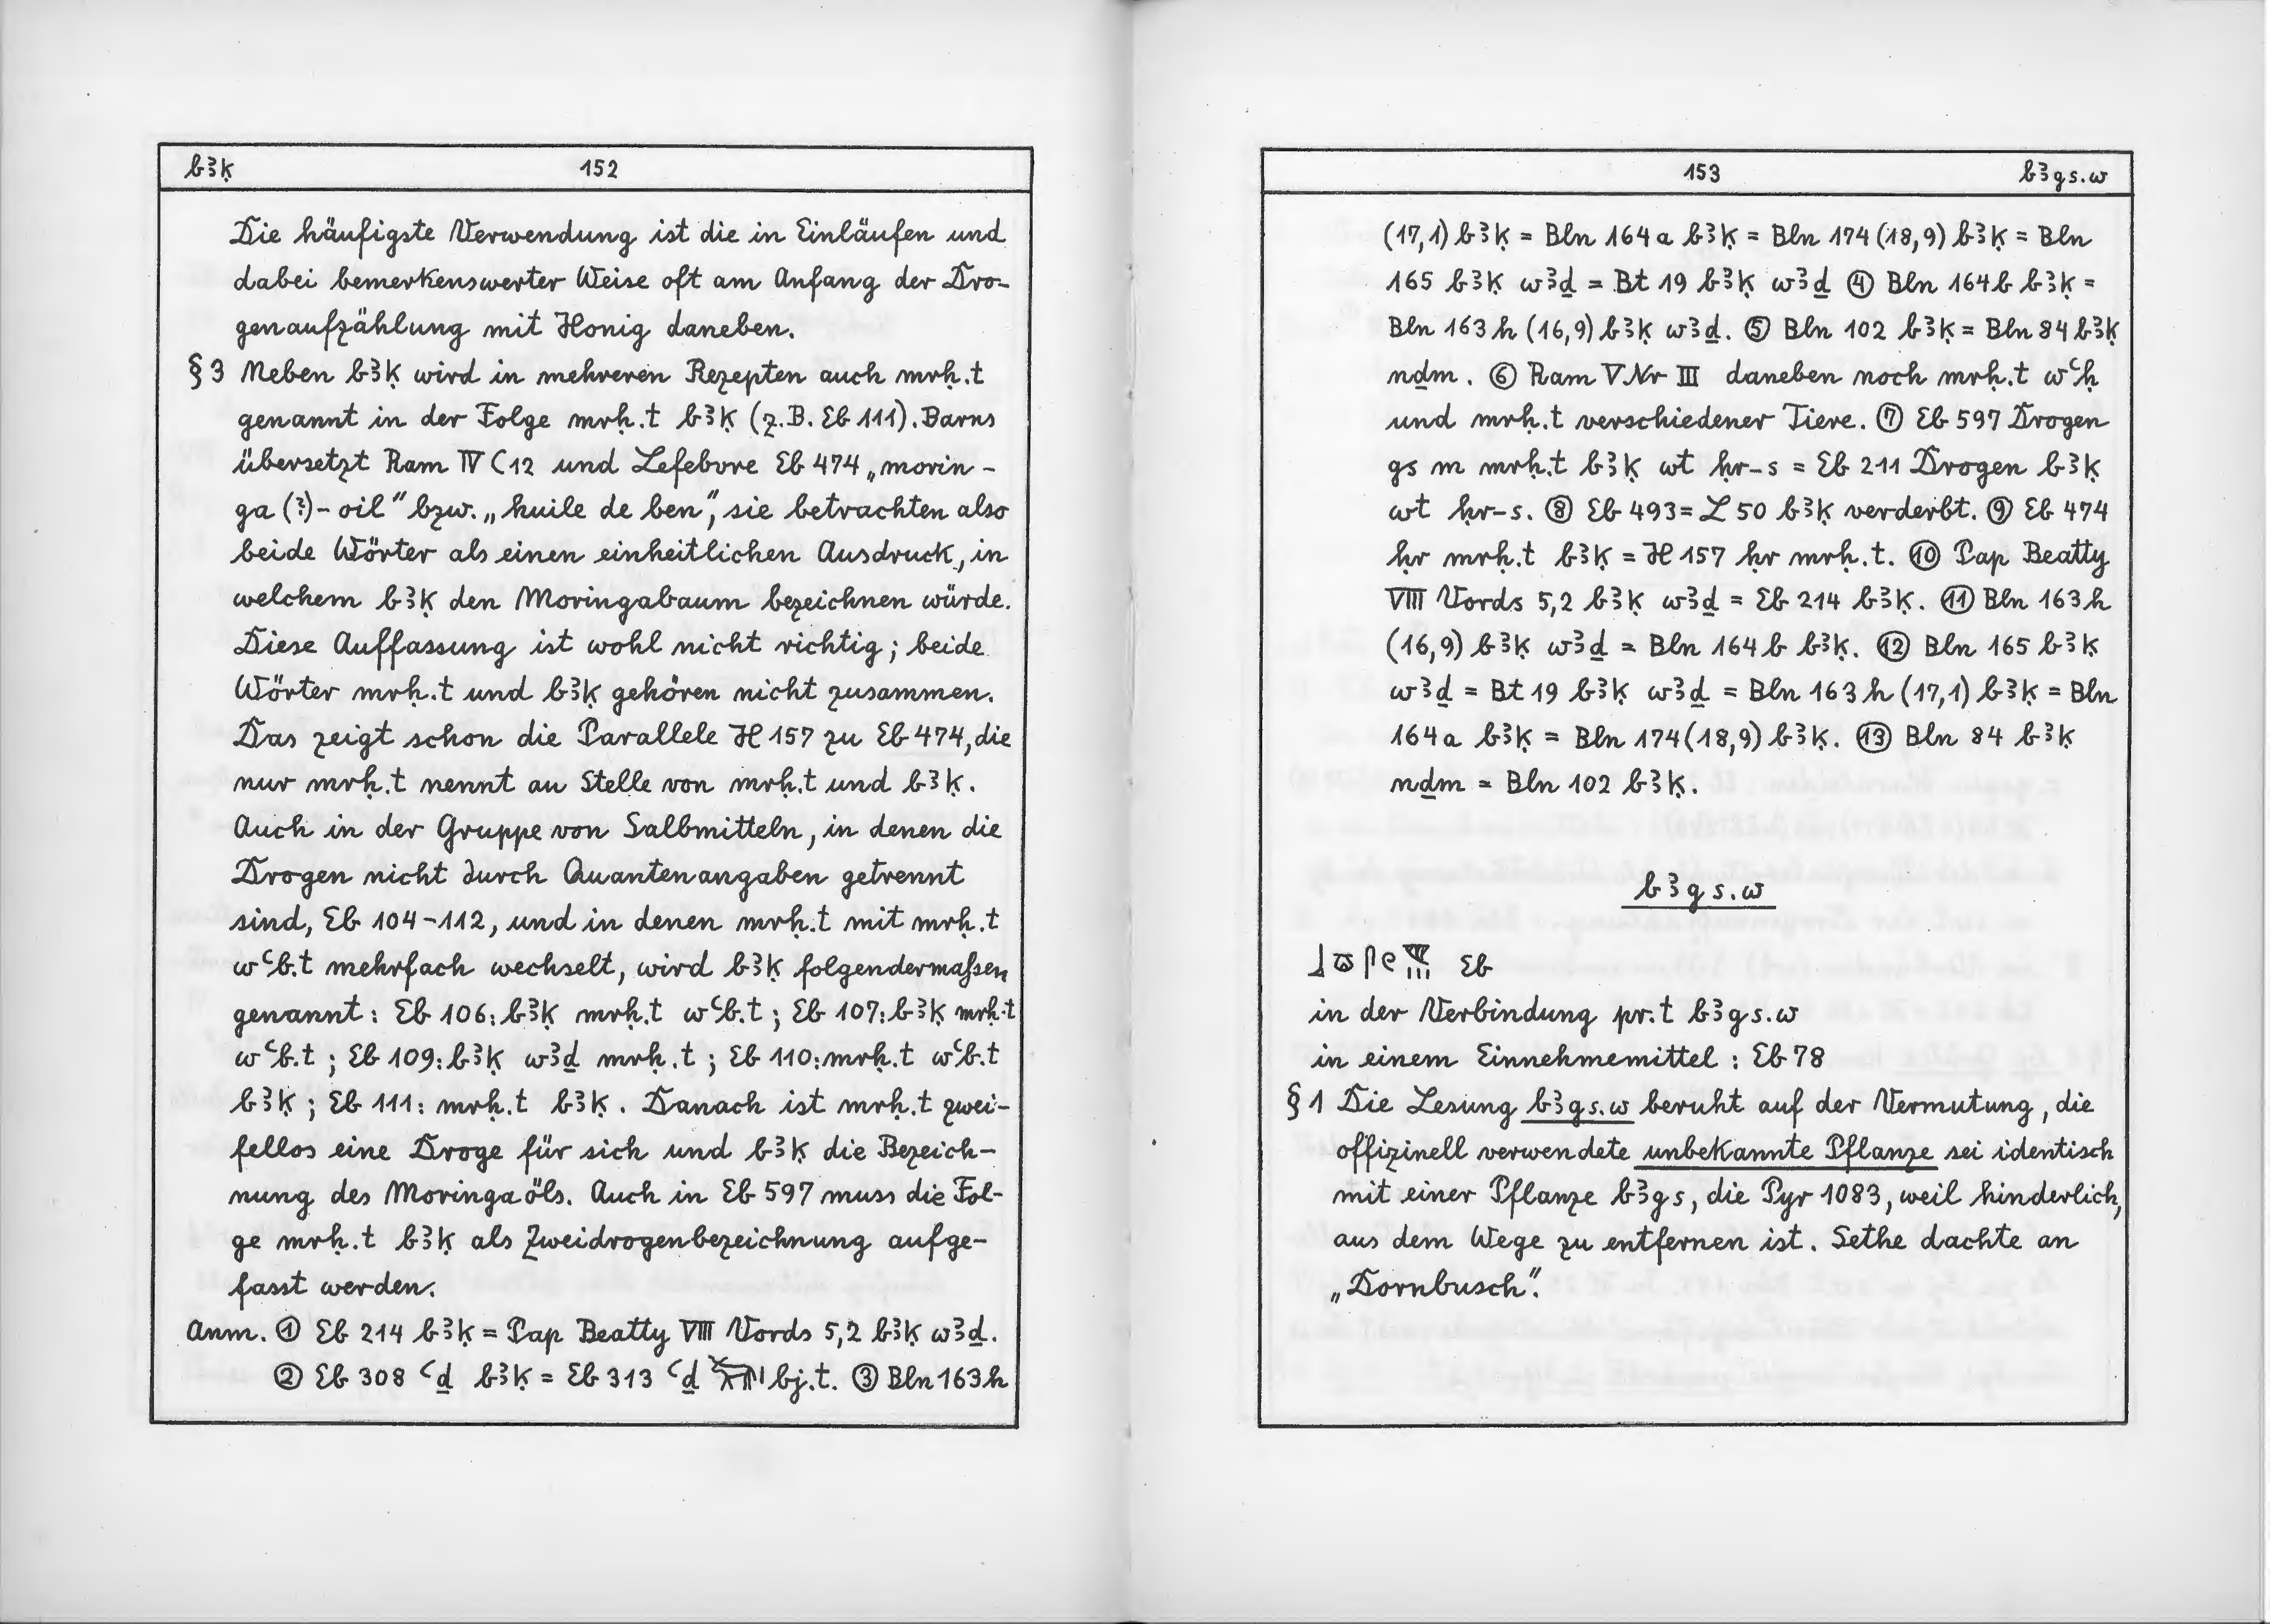 bꜣḳ 152
Die häufigste Verwendung ist die in Einläufen und
dabei bemerkenswerter Weise oft am Anfang der Dro-
genaufzählung mit Honig daneben.
§ 3 Neben bꜣḳ wird in mehreren Rezepten auch mrḥ.t
genannt in der Folge mrḥ.t bꜣḳ (z.B. Eb 111). Barns
übersetzt Ram IV C 12 und Lefebvre Eb 474 „morin-
ga (?)-oil“ bzw. „huile de ben“, sie betrachten also
beide Wörter als einen einheitlichen Ausdruck, in
welchem bꜣḳ den Moringabaum bezeichnen würde.
Diese Auffassung ist wohl nicht richtig; beide
Wörter mrḥ.t und bꜣḳ gehören nicht zusammen.
Das zeigt schon die Parallele H 157 zu Eb 474, die
nur mrḥ.t nennt an Stelle von mrḥ.t und bꜣḳ.
Auch in der Gruppe von Salbmitteln, in denen die
Drogen nicht durch Quantenangaben getrennt
sind, Eb 104-112, und in denen mrḥ.t mit mrḥ.t
wꜥb.t mehrfach wechselt, wird bꜣḳ folgendermaßen
genannt: Eb 106: bꜣḳ mrḥ.t wꜥb.t; Eb 107: bꜣḳ mrḥ.t
wꜥb.t; Eb 109: bꜣḳ wꜣḏ mrḥ.t; Eb 110: mrḥ.t wꜥb.t
bꜣḳ; Eb 111: mrḥ.t bꜣḳ. Danach ist mrḥ.t zwei-
fellos eine Droge für sich und bꜣḳ die Bezeich-
nung des Moringaöls. Auch in Eb 597 muss die Fol-
ge mrḥ.t bꜣḳ als Zweidrogenbezeichnung aufge-
fasst werden.
Anm. ① Eb 214 bꜣḳ = Pap Beatty VIII Vords 5,2 bꜣḳ wꜣḏ.
② Eb 308 ꜥḏ bꜣḳ = Eb 313 ꜥḏ bj.t. ③ Bln 163 h
153 bꜣgs.w
(17,1) bꜣḳ = Bln 164 a bꜣḳ = Bln 174 (18,9) bꜣḳ = Bln
165 bꜣḳ wꜣḏ = Bt 19 bꜣḳ wꜣḏ ④ Bln 164 b bꜣḳ =
Bln 163 h (16,9) bꜣḳ wꜣḏ. ⑤ Bln 102 bꜣḳ = Bln 84 bꜣḳ
nḏm. ⑥ Ram V Nr III daneben noch mrḥ.t wꜥḥ
und mrḥ.t verschiedener Tiere. ⑦ Eb 597 Drogen
gs m mrḥ.t bꜣḳ wt ḥr-s = Eb 211 Drogen bꜣḳ
wt ḥr-s. ⑧ Eb 493 = L 50 bꜣḳ verderbt. ⑨ Eb 474
ḥr mrḥ.t bꜣḳ = H 157 ḥr mrḥ.t. ⑩ Pap Beatty
VIII Vords 5,2 bꜣḳ wꜣḏ = Eb 214 bꜣḳ. ⑪ Bln 163 h
(16,9) bꜣḳ wꜣḏ = Bln 164 b bꜣḳ. ⑫ Bln 165 bꜣḳ
wꜣḏ = Bt 19 bꜣḳ wꜣḏ = Bln 163 h (17,1) bꜣḳ = Bln
164 a bꜣḳ = Bln 174 (18,9) bꜣḳ. ⑬ Bln 84 bꜣḳ
nḏm = Bln 102 bꜣḳ.
bꜣgs.w
Eb
in der Verbindung pr.t bꜣgs.w
in einem Einnehmemittel: Eb 78
§ 1 Die Lesung bꜣgs.w beruht auf der Vermutung, die
offizinell verwendete unbekannte Pflanze sei identisch
mit einer Pflanze bꜣgs, die Pyr 1083, weil hinderlich,
aus dem Wege zu entfernen ist. Sethe dachte an
„Dornbusch“.